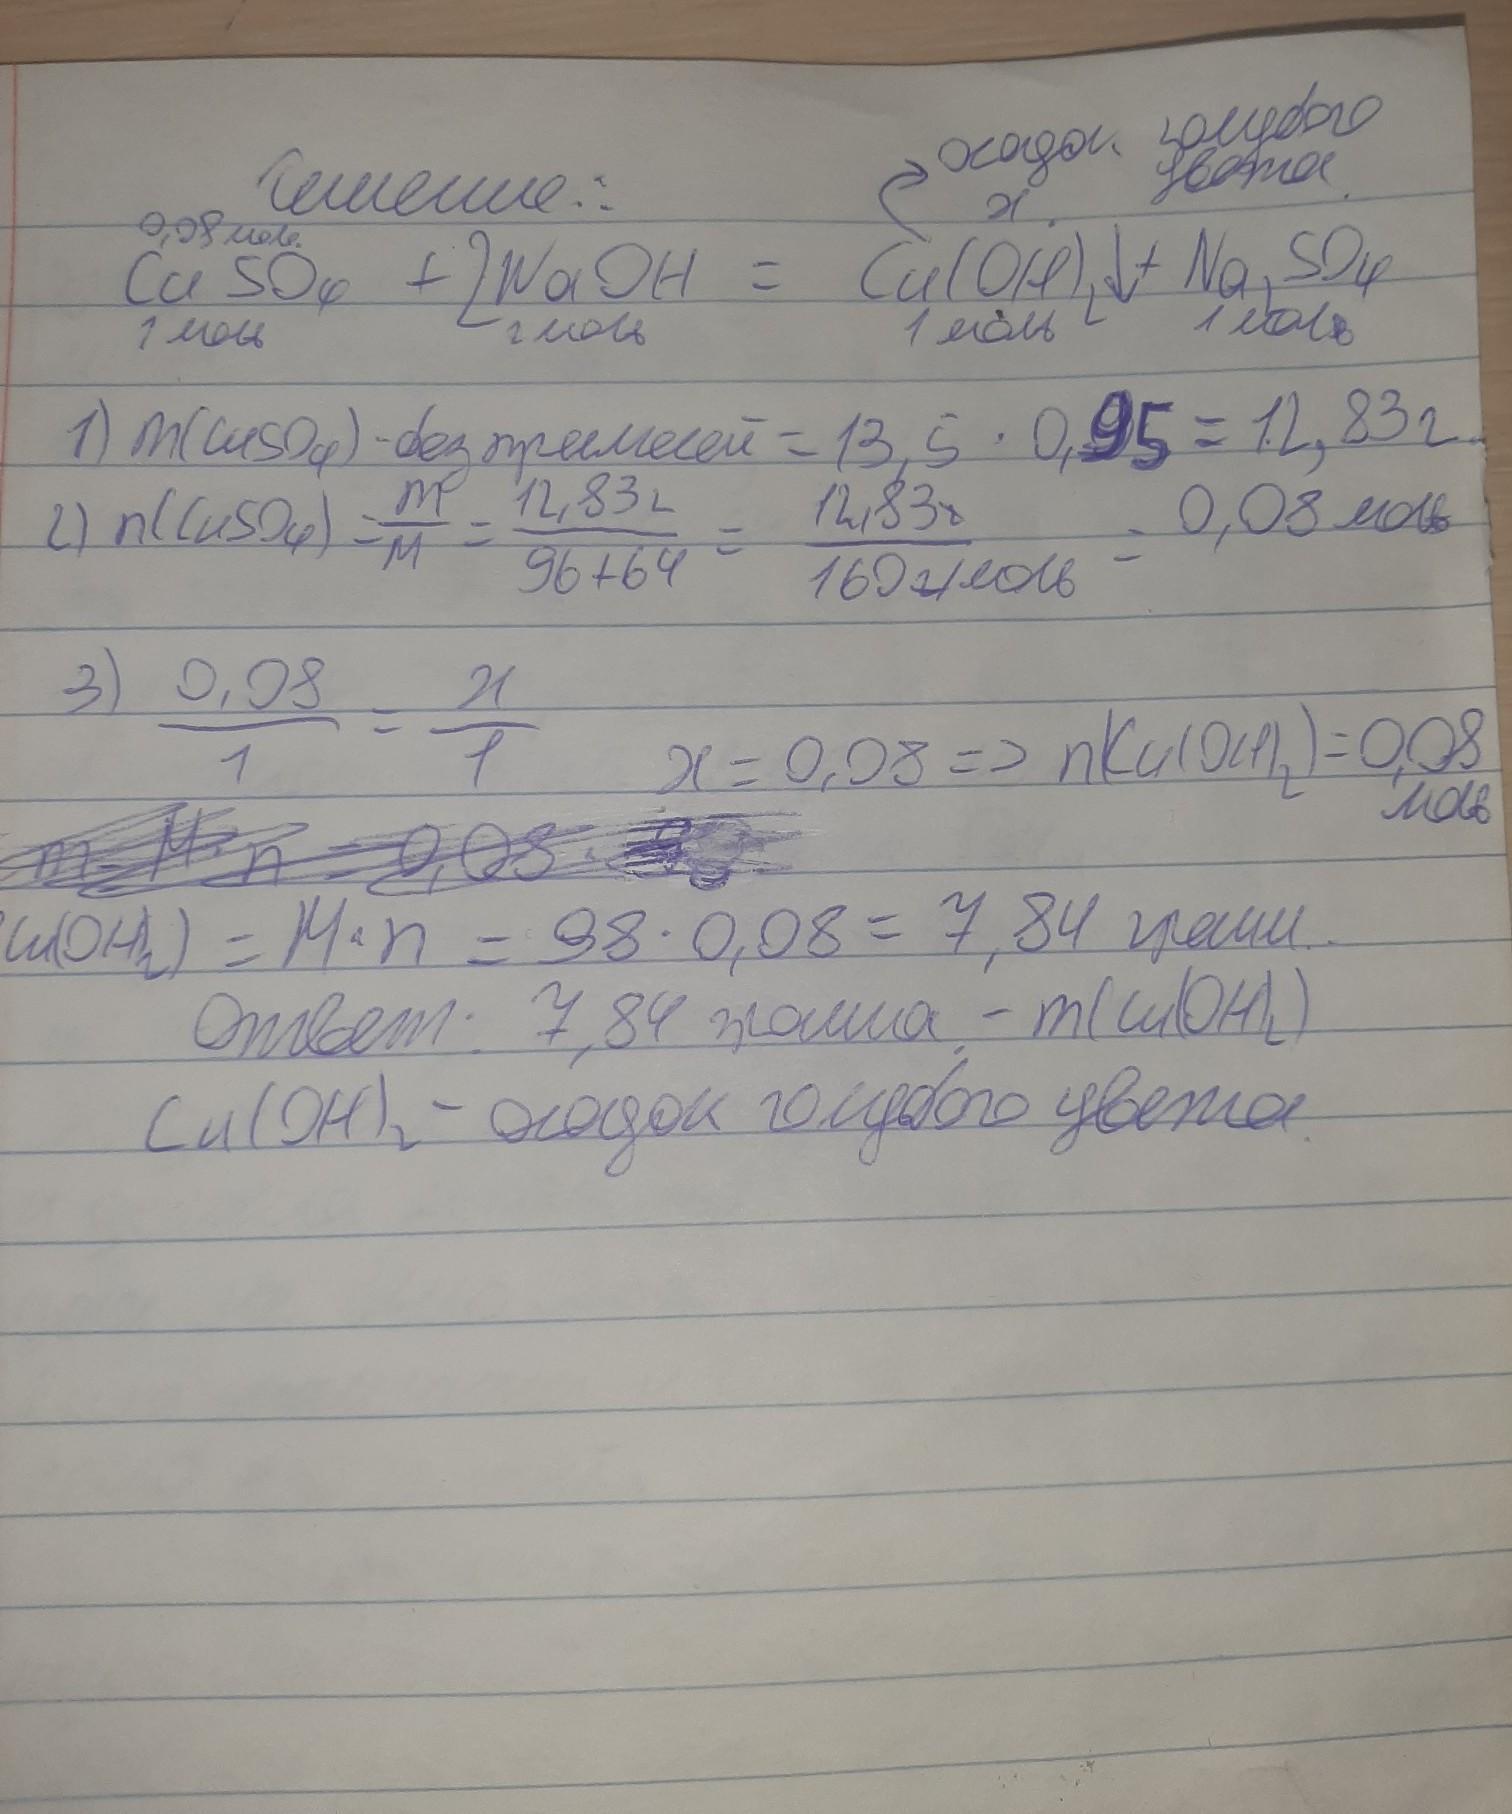 осадок голубого
цвета.
Решение:
0,08 моль x
CuSO₄ + 2NaOH = Cu(OH)₂↓ + Na₂SO₄
1 моль 2 моль 1 моль 1 моль
1) m(CuSO₄) - без примесей = 13,5 · 0,95 = 12,83 г
2) n(CuSO₄) = m/M = 12,83г/96+64 = 12,83г/160 г/моль = 0,08 моль
3) 0,08/1 = x/1 x = 0,08 => n(Cu(OH)₂) = 0,08 моль
m = M · n = 0,08 ·
Cu(OH)₂) = M · n = 98 · 0,08 = 7,84 грамм.
Ответ: 7,84 грамма - m(Cu(OH)₂)
Cu(OH)₂ - осадок голубого цвета.